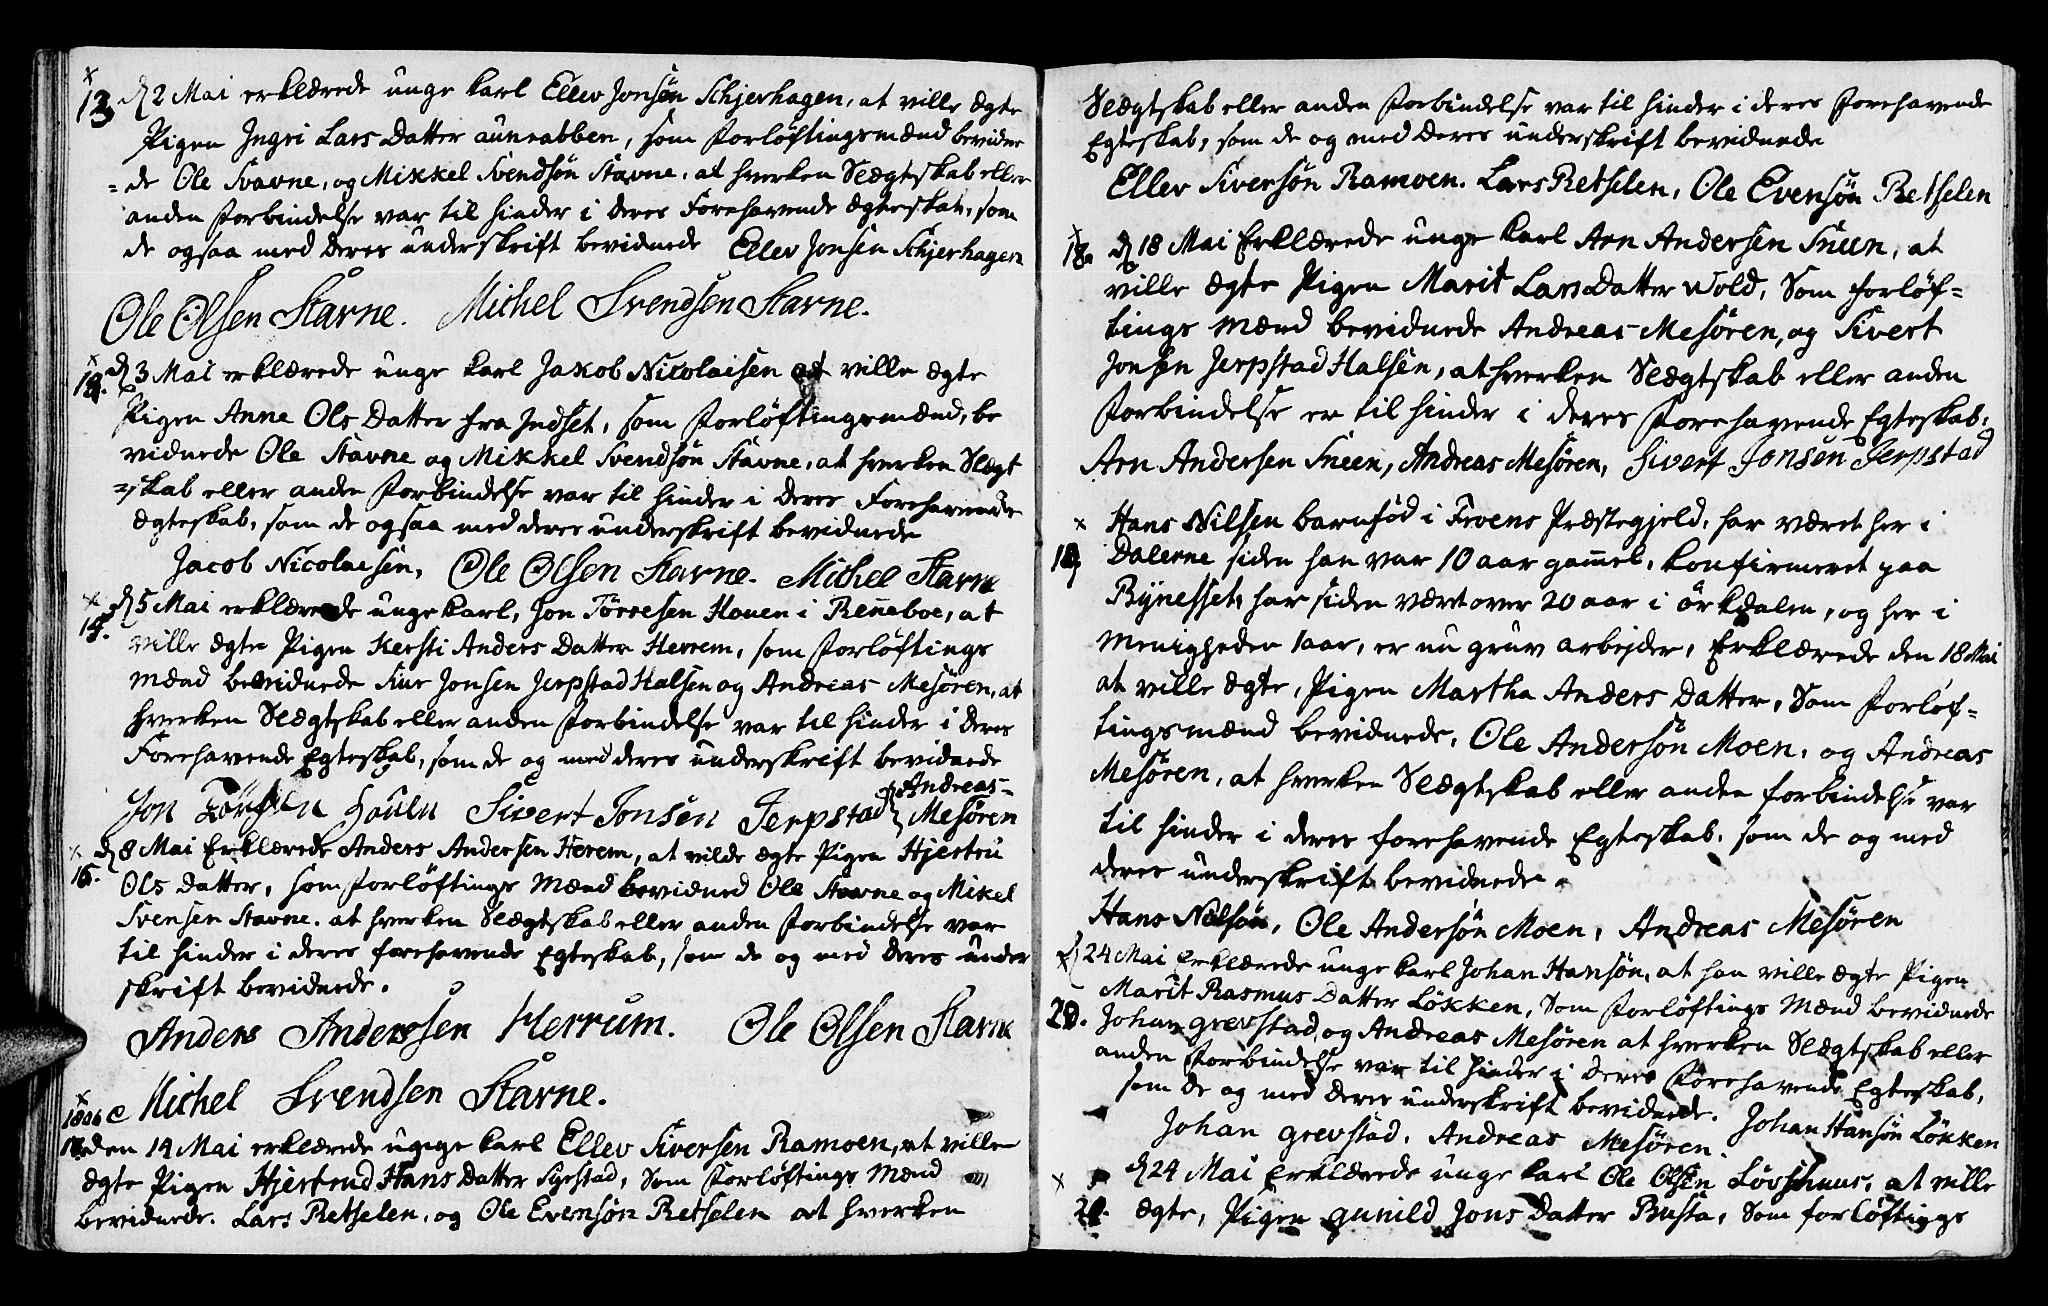 13 d 2 Mai erklærede unge karl Ellev Jonsen Schjerhagen, at ville ægte
Pigen Ingri Lars Datter auneabben, som Forløftingsmænd bevidne
=de Ole Svavne, og Mikkel Svendsön Stavne, at hverken Slægtskab eller
anden Forbindelse var til hinder i deres Forehavende ægteskab, som
de ogsaa med deres underskrift bevidnede Ellev Jonsen Schjerhagen
Ole Olsen Stavne. Michel Svendsen Stavne.
d 3 Mai erklærede unge karl Jakob Nicolaisen at ville ægte
Pigen Anne Ols Datter fra Indset, som Forløftingsmænd, be
vidnede Ole Stavne og Mikkel Svendsön Stavne, at hverken Slægt
=skab eller anden Forbindelse var til hinder i deres Forehavende
ægteskab, som de ogsaa med deres underskrift bevidnede
Jacob Nicolaisen, Ole Olsen Stavne. Michel Stavne
d 5 Mai erklærede unge karl, Jon Törresen Houen i Renneboe, at
ville ægte Pigen Kersti Anders Datter Herrem, som Forløftings
mænd bevidnede Siur Jonsen Jerpstad Halsen og Andreas Mesøren, at
hverken Slægtskab eller anden Forbindelse var til hinder i deres
Forehavende Egteskab, som de og med deres underskrift bevidnede
Jon Houln Sivert Jonsen Jerpstad Andreas=
Mesøren
16. d 8 Mai Erklærede Anders Andersen Herem, at vilde ægte Pigen Hjertru
Ols Datter, som Forløftings Mænd bevidned Ole Stavne og Mikel
Svensen Stavne. at hverken Slægtskab eller anden Forbindelse var
til hinder i deres forehavende Egteskab, som de og med deres under
skrift bevidnede.
Anders Anderssen Herrum. Ole Olsen Stavne
Michel Svendsen Stavne.
den 14 Mai erklærede ugige karl Ellev Siversen Ramoen, at ville
ægte Pigen Hjertrud Hans Datter, Som Forløftings Mænd
bevidnede. Lars Retselen, og Ole Evensön Retselen at hverken
Slægtskab eller anden Forbindelse var til hinder i deres Forehavende
Egteskab, som de og med deres underskrift bevidnede
Ellev Siversön Ramoen. Lars Retselen, Ole Evensön Retselen
18. d 18 Mai Erklærede unge karl Arn Andersen Sneen, at
ville ægte Pigen Marit Lars Datter Wold, Som forløf=
tings Mænd bevidnede Andreas Mesøren, og Sivert
Jonsen Jerpstad Halsen, at hverken Slægtskab eller anden
Forbindelse er til hinder i deres Forehavende Egteskab,
Arn Andersen Sneen, Andreas Mesøren, Sivert Jonsen Jerpstad
Hans Nilsen barnfød i Froens Præstegjeld, har været her i
Dalerne siden han var 10 aar gammel, konfirmeret paa
Bynesset, har siden været over 20 aar i Örkdalen, og her i
Menigheden 1 aar, er nu gruv arbejder, Erklærede den 18 Mai
at ville ægte, Pigen Martha Anders Datter, Som Forløf=
tingsmænd bevidnede, Ole Andersön Moen, og Andreas
Mesøren, at hverken Slægtskab eller anden forbindelse var
til hinder i deres forehavende Egteskab, som de og med
deres underskrift bevidnede.
Hans Nilsön, Ole Andersön Moen, Andreas Mesøren
d 24 Mai Erklærede unge karl Johan Hansön, at han ville ægte Pigen
Marit Rasmus Datter Lökken, Som Forløftings Mænd bevidnede
20. Johan grevstad, og Andreas Mesøren at hverken Slægtskab eller
anden Forbindelse var til hinder i deres Forehavende Egteskab,
som de og med deres underskrift bevidnede. Johan Hansön Lökken
Johan grevstad, Andreas Mesøren.
d 24 Mai Erklærede unge karl Ole Olsen Lövshuus, at ville
21. ægte, Pigen gunild Jons Datter Busta, Som forløftings